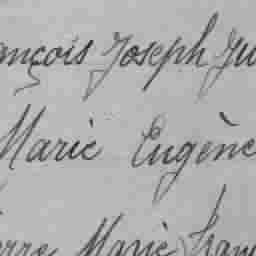 ançois Joseph Ju
Marie Eugène
erre Marie Fran